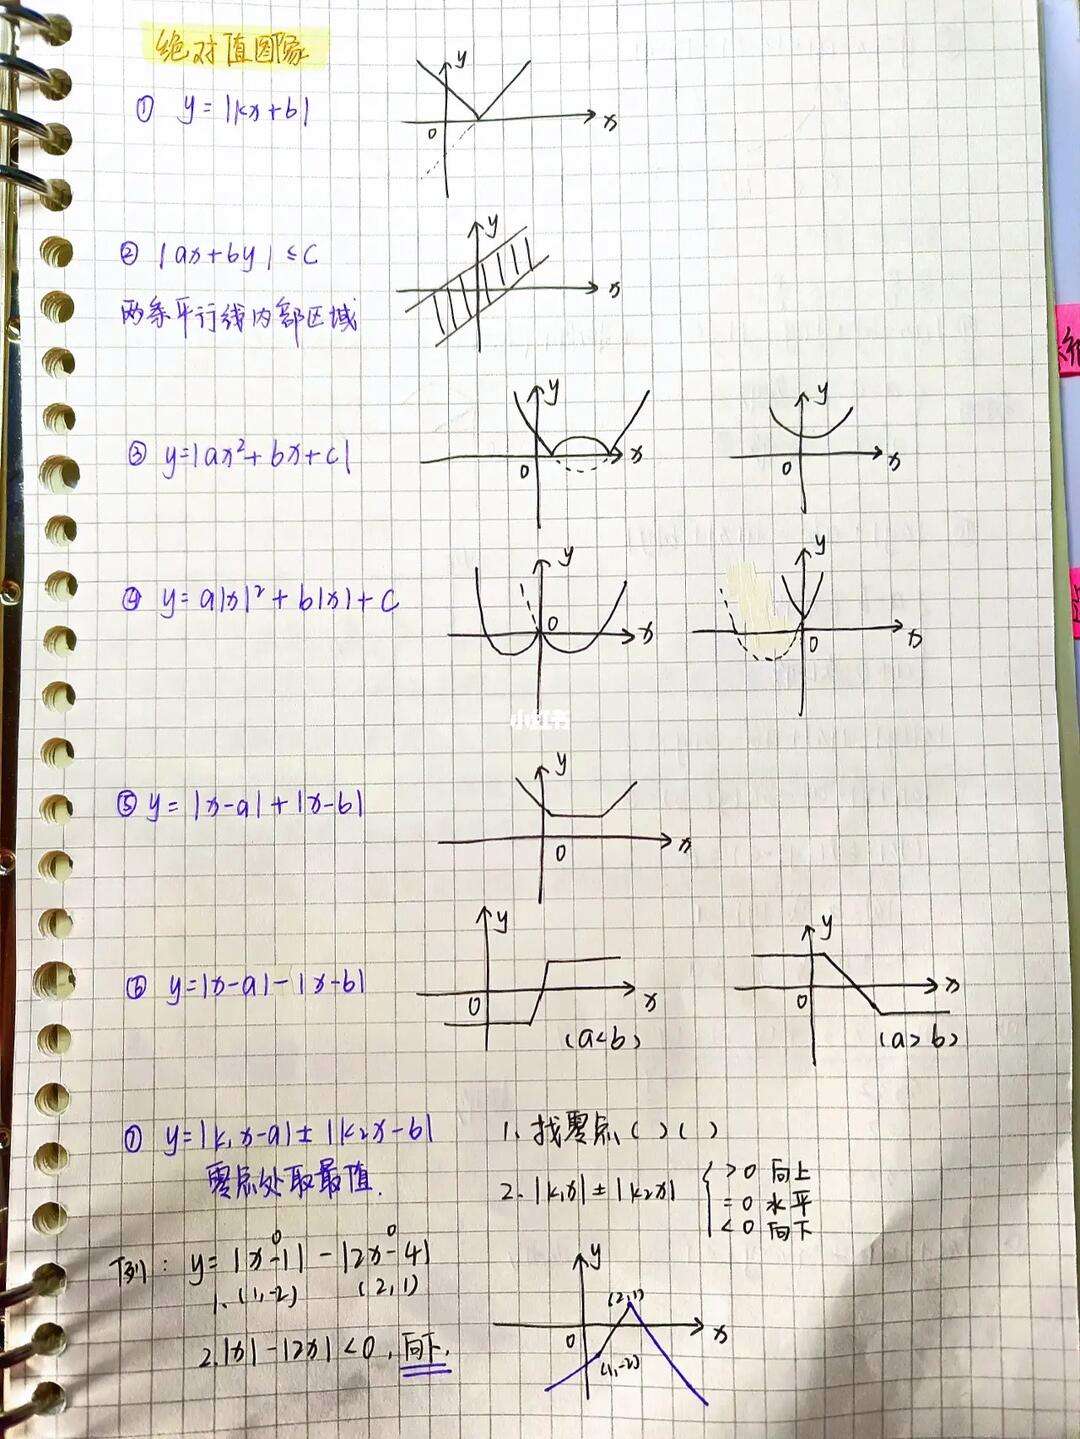 绝对值图象
① y=|kx+b|
y
x
0
② |ax+by|≤c
两条平行线内部区域
y
x
③ y=|ax²+bx+c|
y
x
0
y
x
0
④ y=a|x|²+b|x|+c
y
x
0
y
x
0
小红书
⑤ y=|x-a|+|x-b|
y
x
0
⑥ y=|x-a|-|x-b|
y
x
0
(a<b)
y
x
0
(a>b)
⑦ y=|k₁x-a|±|k₂x-b|
零点处取最值.
1、找零点( )( )
2.|k₁x|±|k₂x|
>0 向上
=0 水平
<0 向下
例: y=|x-1|-|2x-4|
0 0
1.(1,-2) (2,1)
2.|x|-|2x|<0,向下.
y
x
0
(2,1)
(1,-2)